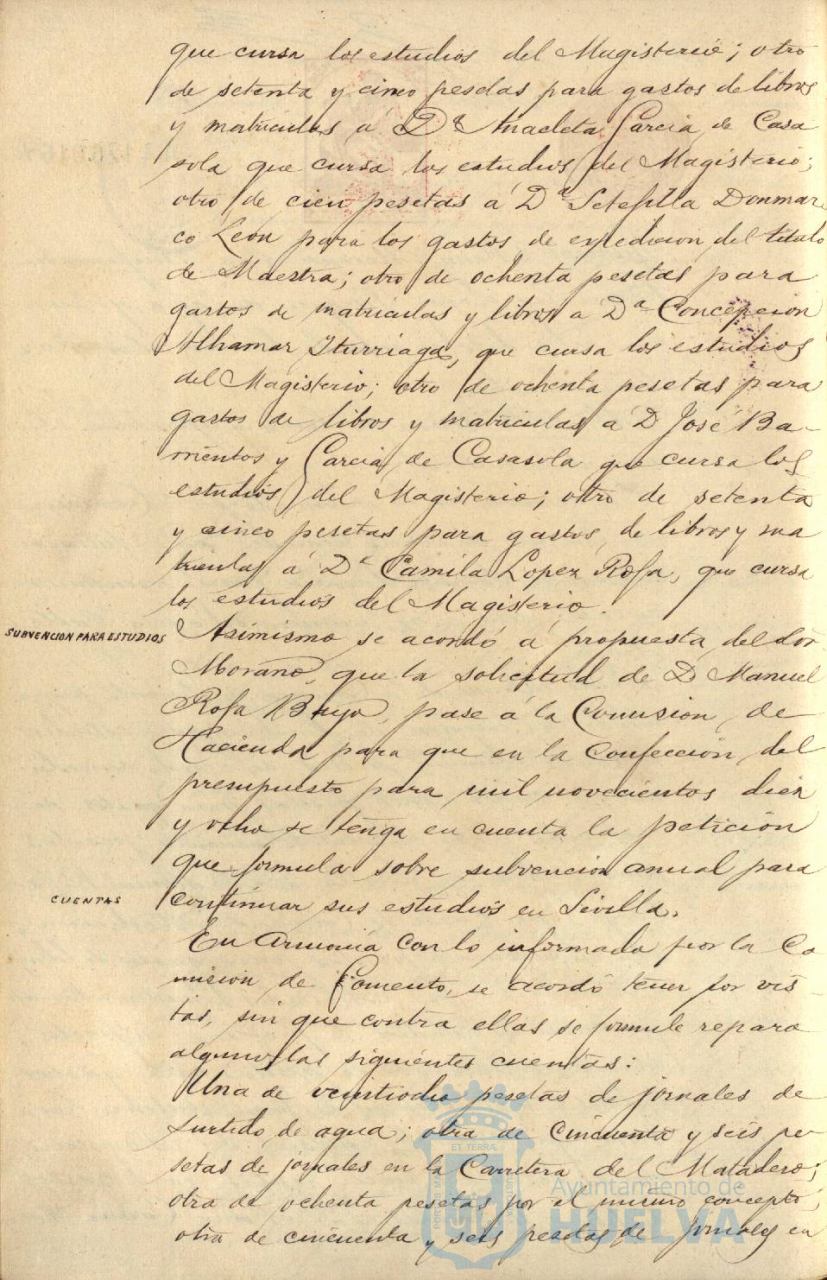 que cursa los estudios del Magisterio; otro
de setenta y cinco pesetas para gastos de libros
y matriculas á D.ª Anacleta Garcia de Casa
sola que cursa los estudios del Magisterio;
otro de cien pesetas á D.ª Setefilla Donmar
co León para los gastos de expedicion del titulo
de Maestra; otro de ochenta pesetas para
gastos de matriculas y libros a D.ª Concepcion
Alhamar Iturriaga, que cursa los estudios
del Magisterio; otro de ochenta pesetas para
gastos de libros y matriculas á D José Ba-
rrientos y Garcia de Casasola que cursa los
estudios del Magisterio; otro de setenta
y cinco pesetas para gastos de libros y ma
triculas á D.ª Camila Lopez Rofa, que cursa
los estudios del Magisterio.
SUBVENCION PARA ESTUDIOS
Asimismo se acordó á propuesta del Sor
Morano, que la solicitud de D Manuel
Rofa Bayo, pase á la Comision de
Hacienda para que en la confección del
presupuesto para mil novecientos diez
y ocho se tenga en cuenta la petición
que formula sobre subvencion anual para
continuar sus estudios en Sevilla.
CUENTAS
En armonía con lo informado por la Co
mision de Fomento, se acordó tener por vis-
tas, sin que contra ellas se formule reparo
alguno, las siguientes cuentas:
Una de veintiocho pesetas de jornales de
surtido de agua; otra de cincuenta y seis pe
setas de jornales en la Carretera del Matadero;
otra de ochenta pesetas por el mismo concepto;
otra de cincuenta y seis pesetas de jornales en
Ayuntamiento de
HUELVA